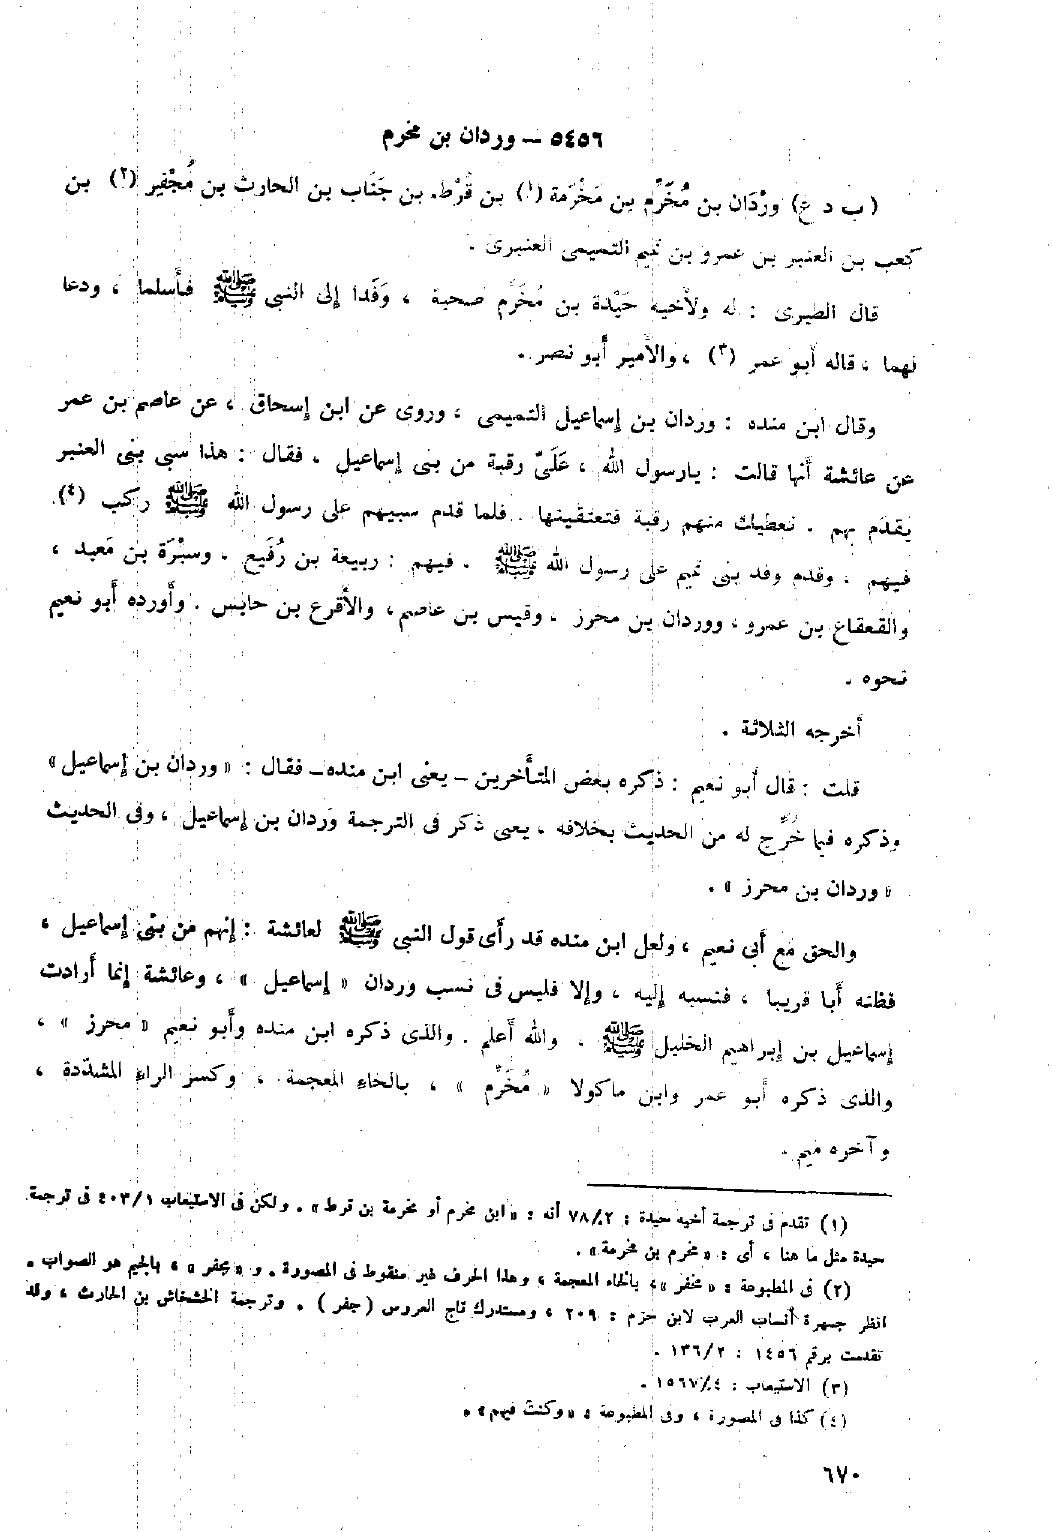 ٥٤٥٦ – وردان بن مخرم
( ب د ع) وِرْدَان بن مُخَرِّم بن مَخْرَمة (١) بن قُرْط. بن جَنَاب بن الحارث بن مُجْفِير (٢) بن
كعب بن العنبر بن عمرو بن تميم التميمى العنبرى .
قال الطبرى : له ولأخيه حَيْدة بن مُخَرَّم صحبة ، وَفَدا إلى النبى ﷺ فأسلما ، ودعا
لهما ، قاله أبو عمر (٣) ، والأمير أبو نصر .
وقال ابن منده : وردان بن إسماعيل التميمى ، وروى عن ابن إسحاق ، عن عاصم بن عمر
عن عائشة أنها قالت : يارسول الله ، عَلَىّ رقبة من بنى إسماعيل . فقال : هذا سبى بنى العنبر
يقدَم بهم . نعطيك منهم رقبة فتعتقينها . فلما قدم سبيهم على رسول الله ﷺ ركب (٤)
فيهم ، وقدم وفد بنى تميم على رسول الله ﷺ . فيهم : ربيعة بن رُفَيع . وسبْرَة بن مَعبد ،
والقعقاع بن عمرو ، ووردان بن محرز ، وقيس بن عاصم ، والأقرع بن حابس . وأورده أبو نعيم
نحوه .
أخرجه الثلاثة .
قلت : قال أبو نعيم : ذكره بعض المتأخرين – يعنى ابن منده – فقال : « وردان بن إسماعيل »
وذكره فيما خَرَّج له من الحديث بخلافه ، يعنى ذكر فى الترجمة وَردان بن إسماعيل ، وفى الحديث
« وردان بن محرز » .
والحق مَع أبى نعيم ، ولعل ابن منده قد رأى قول النبى ﷺ لعائشة : إنهم من بنى إسماعيل ،
فظنه أبا قريبا ، فنسبه إليه ، وإلا فليس فى نسب وردان « إسماعيل » ، وعائشة إنما أرادت
إسماعيل بن إبراهيم الخليل ﷺ . والله أعلم . والذى ذكره ابن منده وأبو نعيم « محرز » ،
والذى ذكره أبو عمر وابن ماكولا « مُخَرِّم » ، بالخاء المعجمة ، وكسر الراء المشدّدة ،
وآخره ميم .
(١) تقدم فى ترجمة أخيه حيدة : ٧٨/٢ أنه : « ابن مخرم أو مخرمة بن قرط » . ولكن فى الاستيعاب ٤٠٣/١ فى ترجمة
حيدة مثل ما هنا ، أى : « مخرم بن مخرمة » .
(٢) فى المطبوعة : « مخفر » ، بالخاء المعجمة ، وهذا الحرف غير منقوط فى المصورة . و « مجفر » ، بالجيم هو الصواب .
انظر جمهرة أنساب العرب لابن حزم : ٢٠٩ ، ومستدرك تاج العروس ( جفر ) . وترجمة الخشخاش بن الحارث ، ولقد
تقدمت برقم ١٤٥٦ : ١٣٦/٢ .
(٣) الاستيعاب : ١٥٦٧/٤ .
(٤) كذا فى المصورة ، وفى المطبوعة : « وكنت فيهم » .
٦٧٠